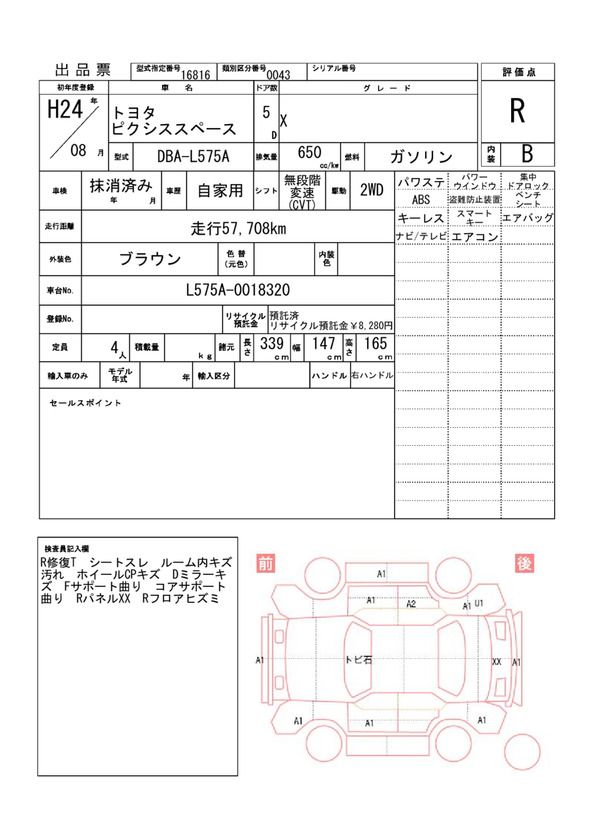 出品票
型式指定番号 16816 類別区分番号 0043 シリアル番号
評価点
初年度登録 車名 ドア数 グレード
H24年 トヨタ 5D X R
ピクシススペース
08月 型式 DBA-L575A 排気量 650 cc/kw 燃料 ガソリン 内装 B
車検 抹消済み 年 月 車歴 自家用 シフト 無段階変速(CVT) 駆動 2WD
パワステ パワーウインドウ 集中ドアロック
ABS 盗難防止装置 ベンチシート
走行距離 走行57,708km
キーレス スマートキー エアバッグ
ナビ/テレビ エアコン
外装色 ブラウン 色替(元色) 内装色
車台No. L575A-0018320
登録No. リサイクル預託金 預託済
リサイクル預託金¥8,280円
定員 4人 積載量 kg 諸元 長さ 339cm 幅 147cm 高さ 165cm
輸入車のみ モデル年式 年 輸入区分 ハンドル 右ハンドル
セールスポイント
検査員記入欄
R修復T シートスレ ルーム内キズ
汚れ ホイールCPキズ Dミラーキ
ズ Fサポート曲り コアサポート
曲り RパネルXX Rフロアヒズミ
前 後
A1
A1 A2 A1 U1
A1 トビ石 XX A1
A1 A1 A1